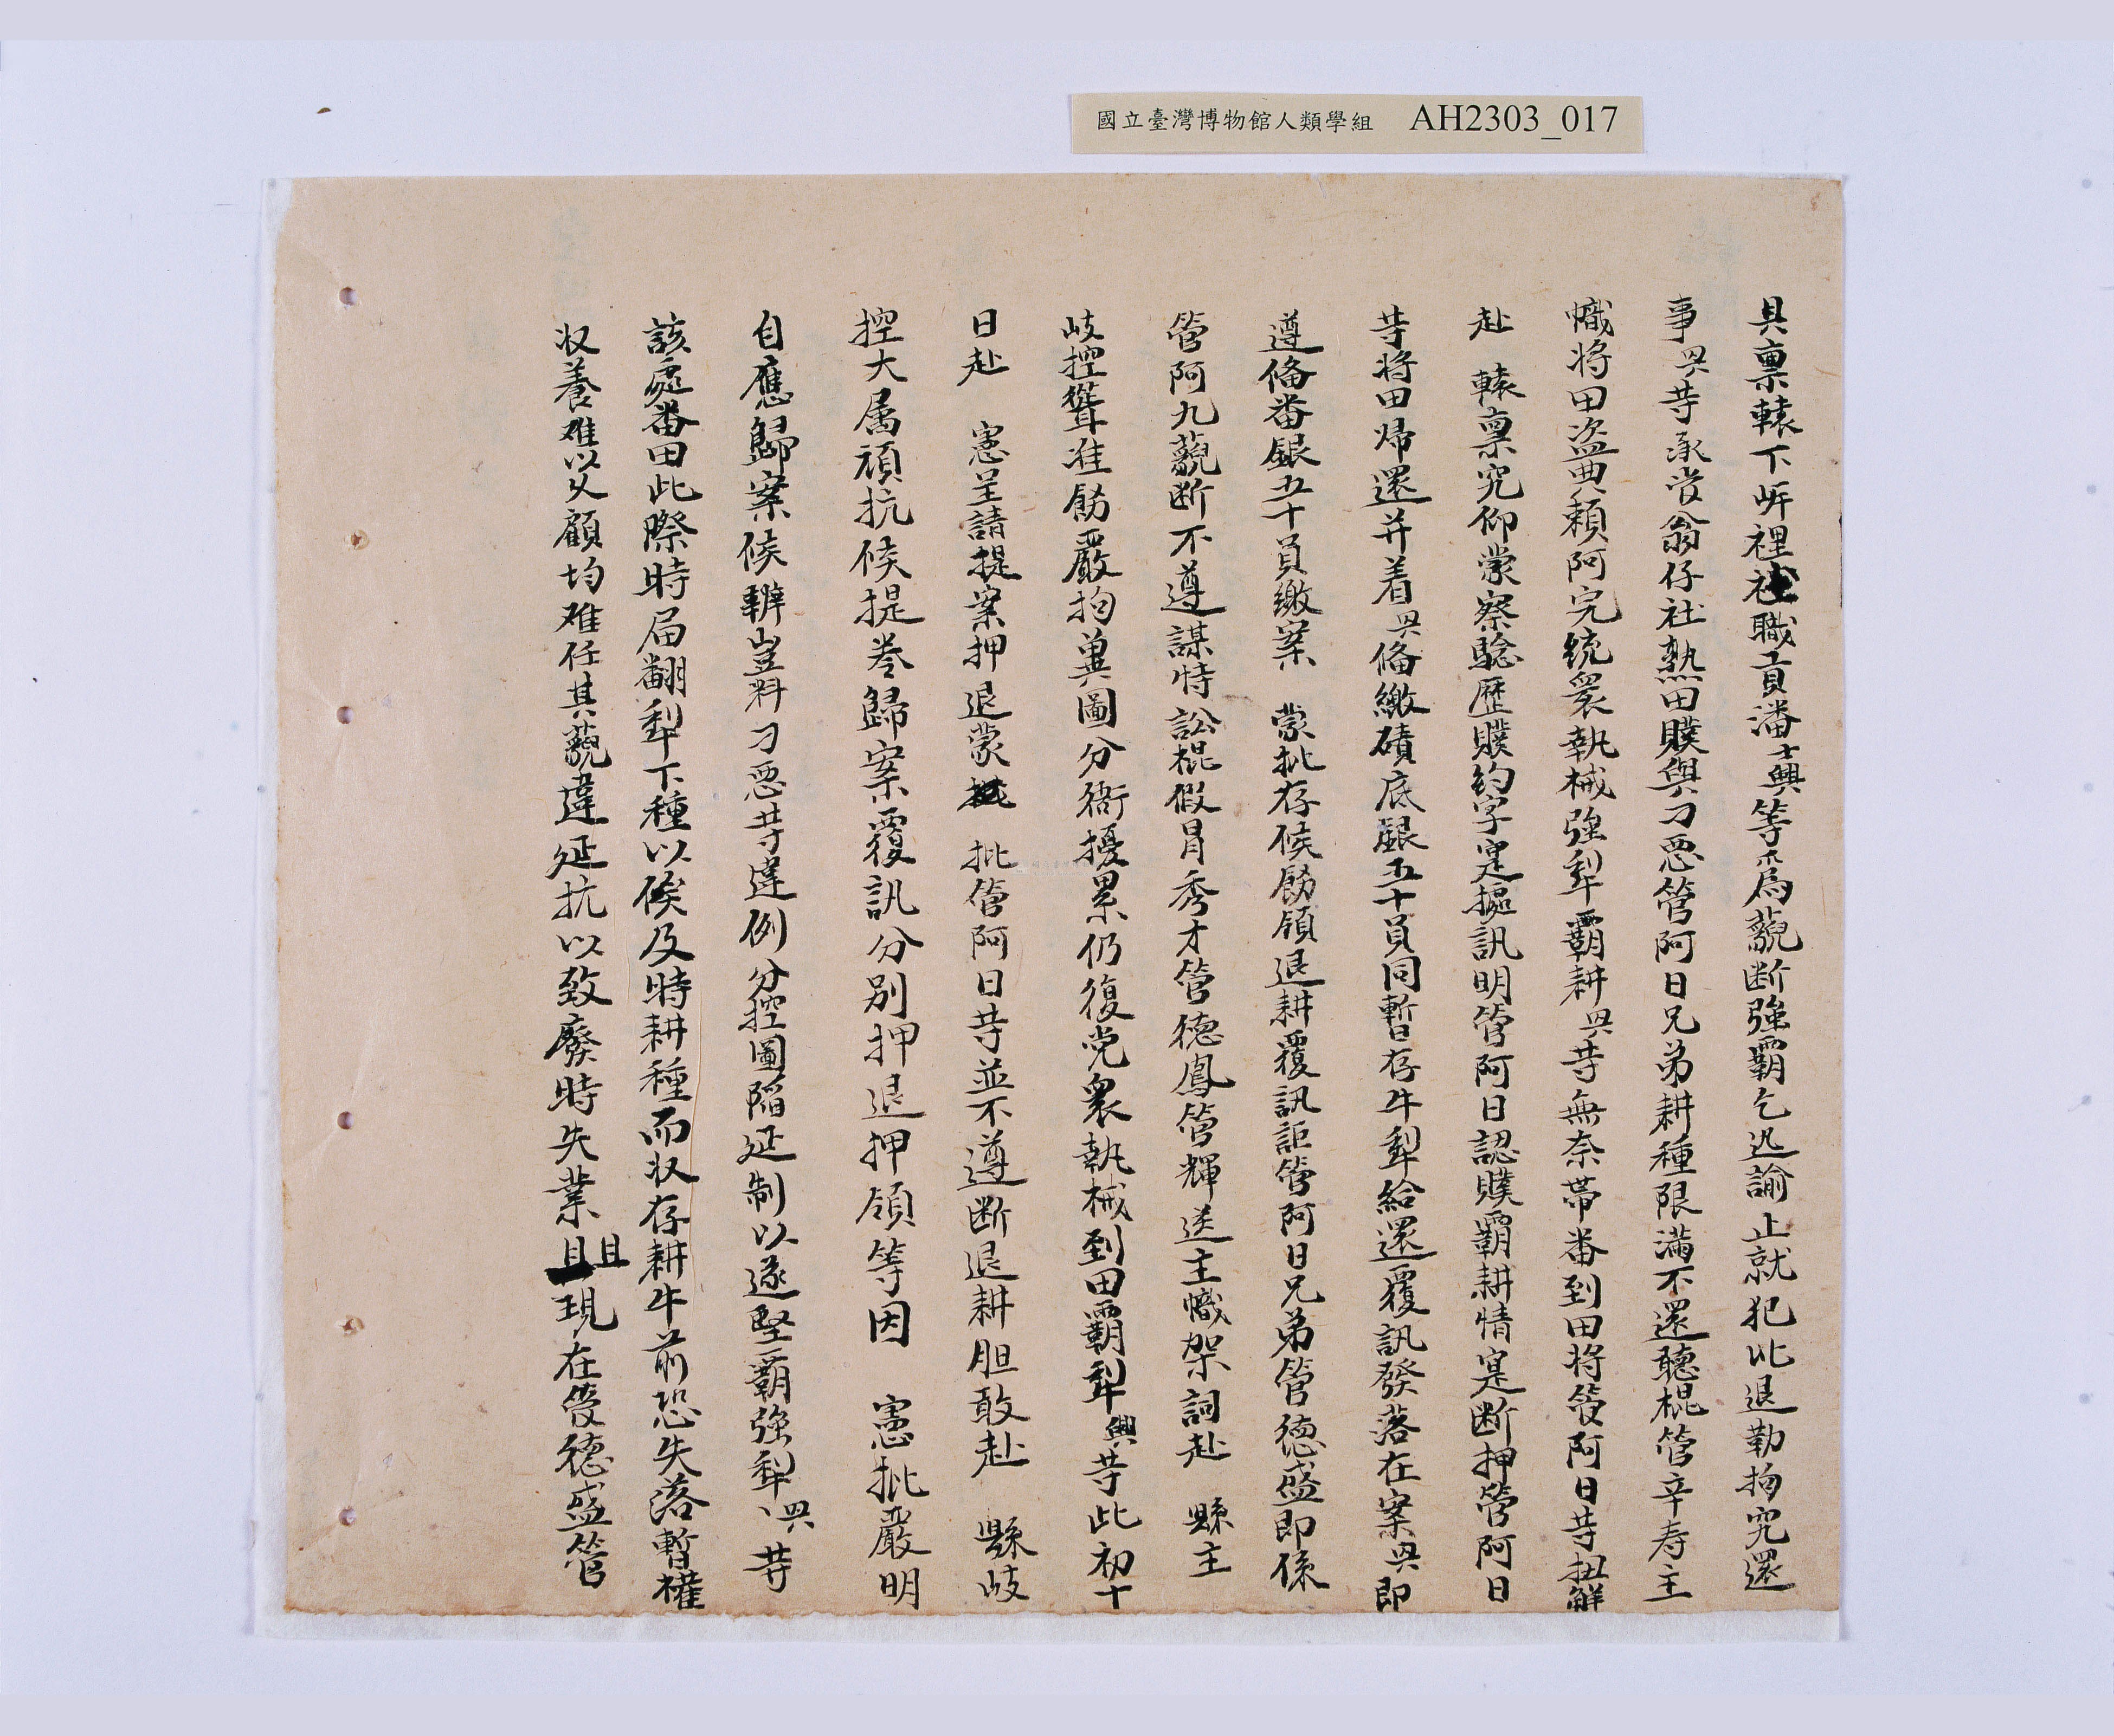 國立臺灣博物館人類學組 AH2303_017
具稟轅下岸裡社職員潘士興等爲藐断強霸乞迅諭止就犯比退勒拘究還
事興等承管翁仔社熟田贌與刁悪管阿日兄弟耕種限滿不還聽棍管辛寿主
幟将田盜典賴阿完統衆執械強犁霸耕興等無奈帯番到田将管阿日等扭觧
赴 轅稟究仰蒙察騐歴贌約字寔據訊明管阿日認贌霸耕情寔断押管阿日
等将田帰還并着興俻繳磧底銀五十員同暫存牛犁給還覆訊發落在案興即
遵俻番銀五十員繳案 蒙批存候飭領退耕覆訊詎管阿日兄弟管徳盛即係
管阿九藐断不遵謀恃訟棍假冒秀才管德鳳管輝送主幟架詞赴 縣主
岐控聳准飭嚴拘兾圖分衙擾累仍復党衆執械到田霸犁興等此初十
日赴 憲呈請提案押退蒙 批管阿日等並不遵断退耕胆敢赴 縣岐
控大属頑抗候提卷歸案覆訊分别押退押領等因 憲批嚴明
自應歸案候辦豈料刁悪等違例分控圖陷延制以遂堅霸強犁興等
該處番田此際時届翻犁下種以俟及時耕種而収存耕牛前恐失落暫權
収養难以久顧均难任其藐違延抗以致廢時失業且現在管德盛管